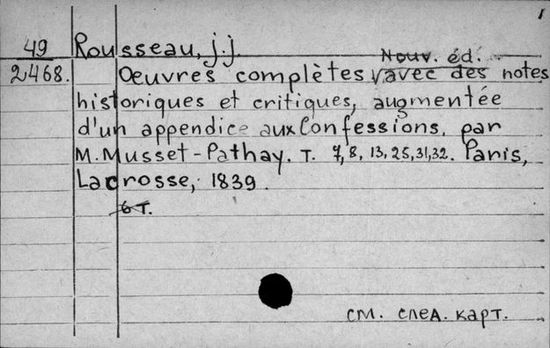 1
49 Rousseau, j.j.
Nouv. éd.
2468. Oeuvres complètes avec des notes
historiques et critiques, augmentée
d'un appendice aux Confessions, par
M. Musset-Pathay. T. 7, 8, 13, 25, 31, 32. Paris,
Lacrosse, 1839.
6 T.
см. след. карт.